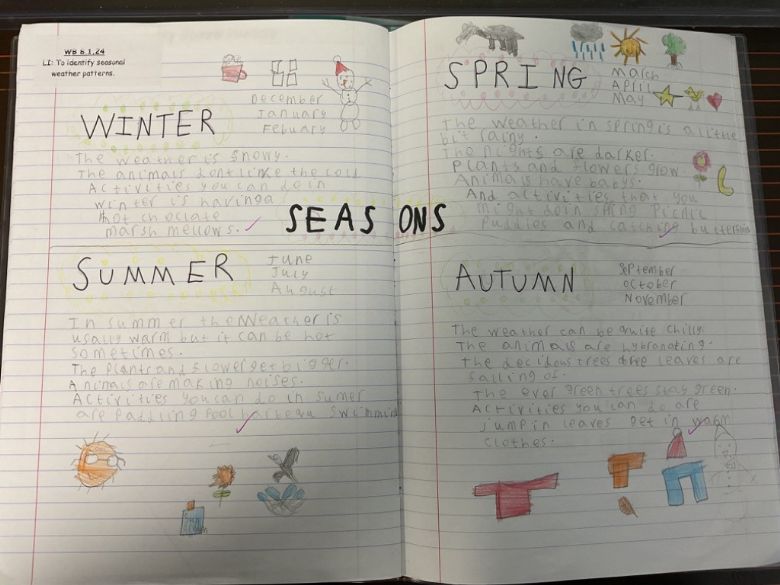 WB 8.1.24
LI: To identify seasonal
weather patterns.
WINTER
December
January
Febuary
The weather is snowy.
The animals dont like the cold
Activities you can do in
winter is having a
hot choclate
marsh mellows.
SEASONS
SPRING
March
April
May
The weather in spring is a little
bit rainy.
The nights are darker.
Plants and flowers grow
Animals have babys.
And activities that you
might do in spring Picnic
puddles and catching
SUMMER
June
July
August
In summer the Weather is
usally warm but it can be hot
sometimes.
The Plants and flower get bigger.
Animals are making noises.
Activities you can do in sumer
are Paddling Pool
AUTUMN
September
october
November
The weather can be quite chilly.
The animals are
The trees leaves are
The ever green trees stay green.
Activities you can do are
jump in leaves get in warm
clothes.